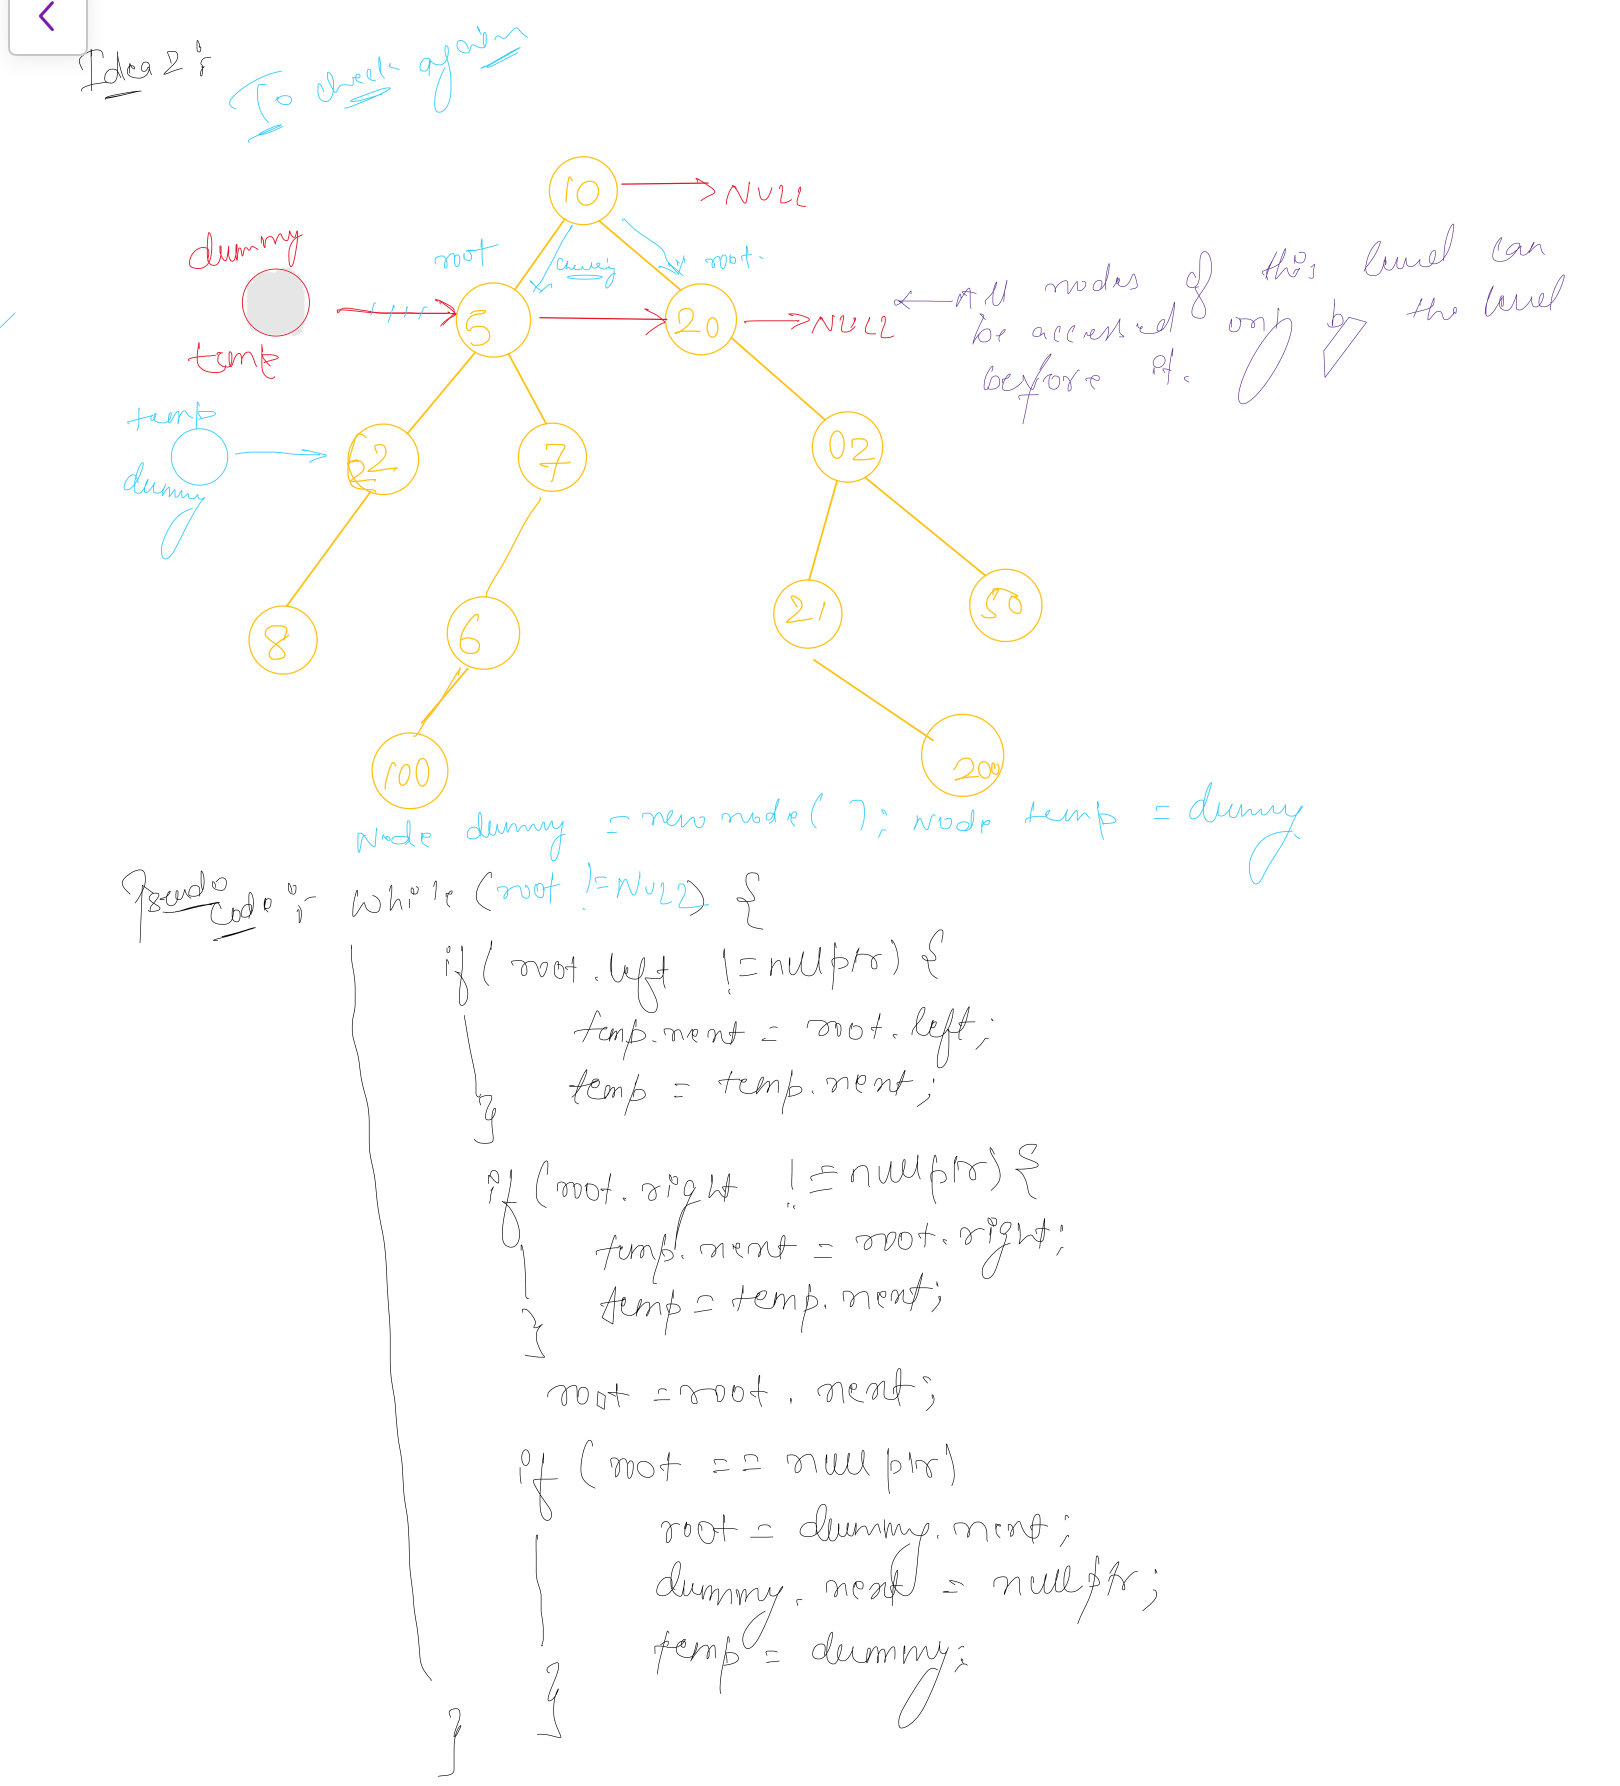 Idea 2 :
To check again
10 → NULL
dummy
root
checking
root.
5 → 20 → NULL
← All nodes of this level can
be accessed only by the level
before it.
temp
temp
dummy
2
7
02
8
6
21
50
100
200
Node dummy = new node( ); Node temp = dummy
Pseudo code :- while (root != NULL) {
if( root.left != nullptr) {
temp.next = root.left;
temp = temp.next;
}
if (root.right != nullptr) {
temp.next = root.right;
temp = temp.next;
}
root = root.next;
if (root == nullptr)
root = dummy.next;
dummy.next = nullptr;
temp = dummy;
}
}